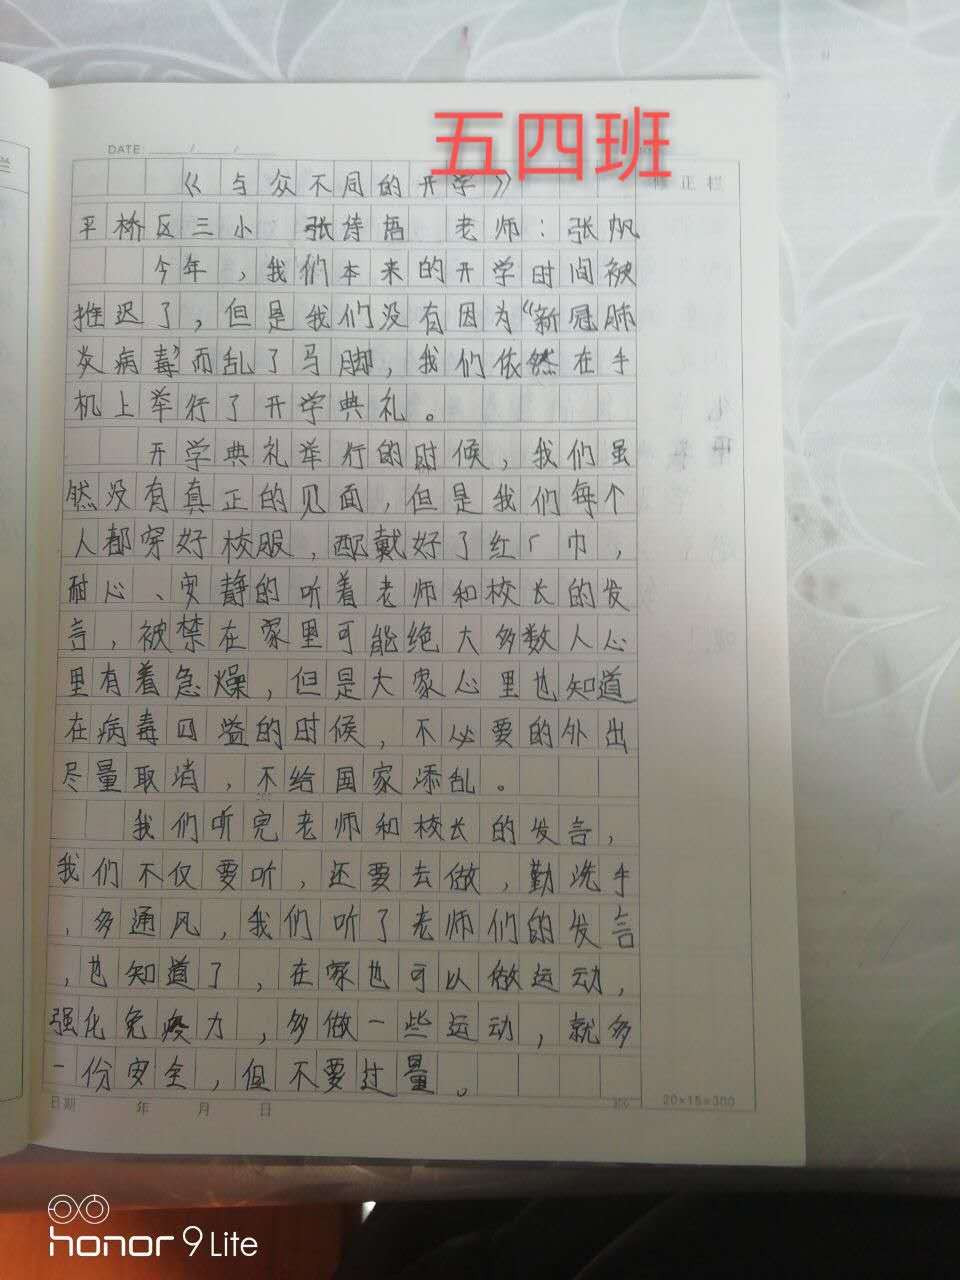 五四班
DATE / /
《与众不同的开学》 修正栏
平桥区三小 张诗语 老师：张帆
今年，我们本来的开学时间被
推迟了，但是我们没有因为“新冠肺
炎病毒”而乱了马脚，我们依然在手
机上举行了开学典礼。
开学典礼举行的时候，我们虽
然没有真正的见面，但是我们每个
人都穿好校服，配戴好了红厂巾，
耐心、安静的听着老师和校长的发
言，被禁在家里可能绝大多数人心
里有着急燥，但是大家心里也知道
在病毒四溢的时候，不必要的外出
尽量取消，不给国家添乱。
我们听完老师和校长的发言，
我们不仅要听，还要去做，勤洗手
，多通风，我们听了老师们的发言
，也知道了，在家也可以做运动，
强化免疫力，多做一些运动，就多
一份安全，但不要过量。
日期 年 月 日 300 20×15=300
honor 9 Lite